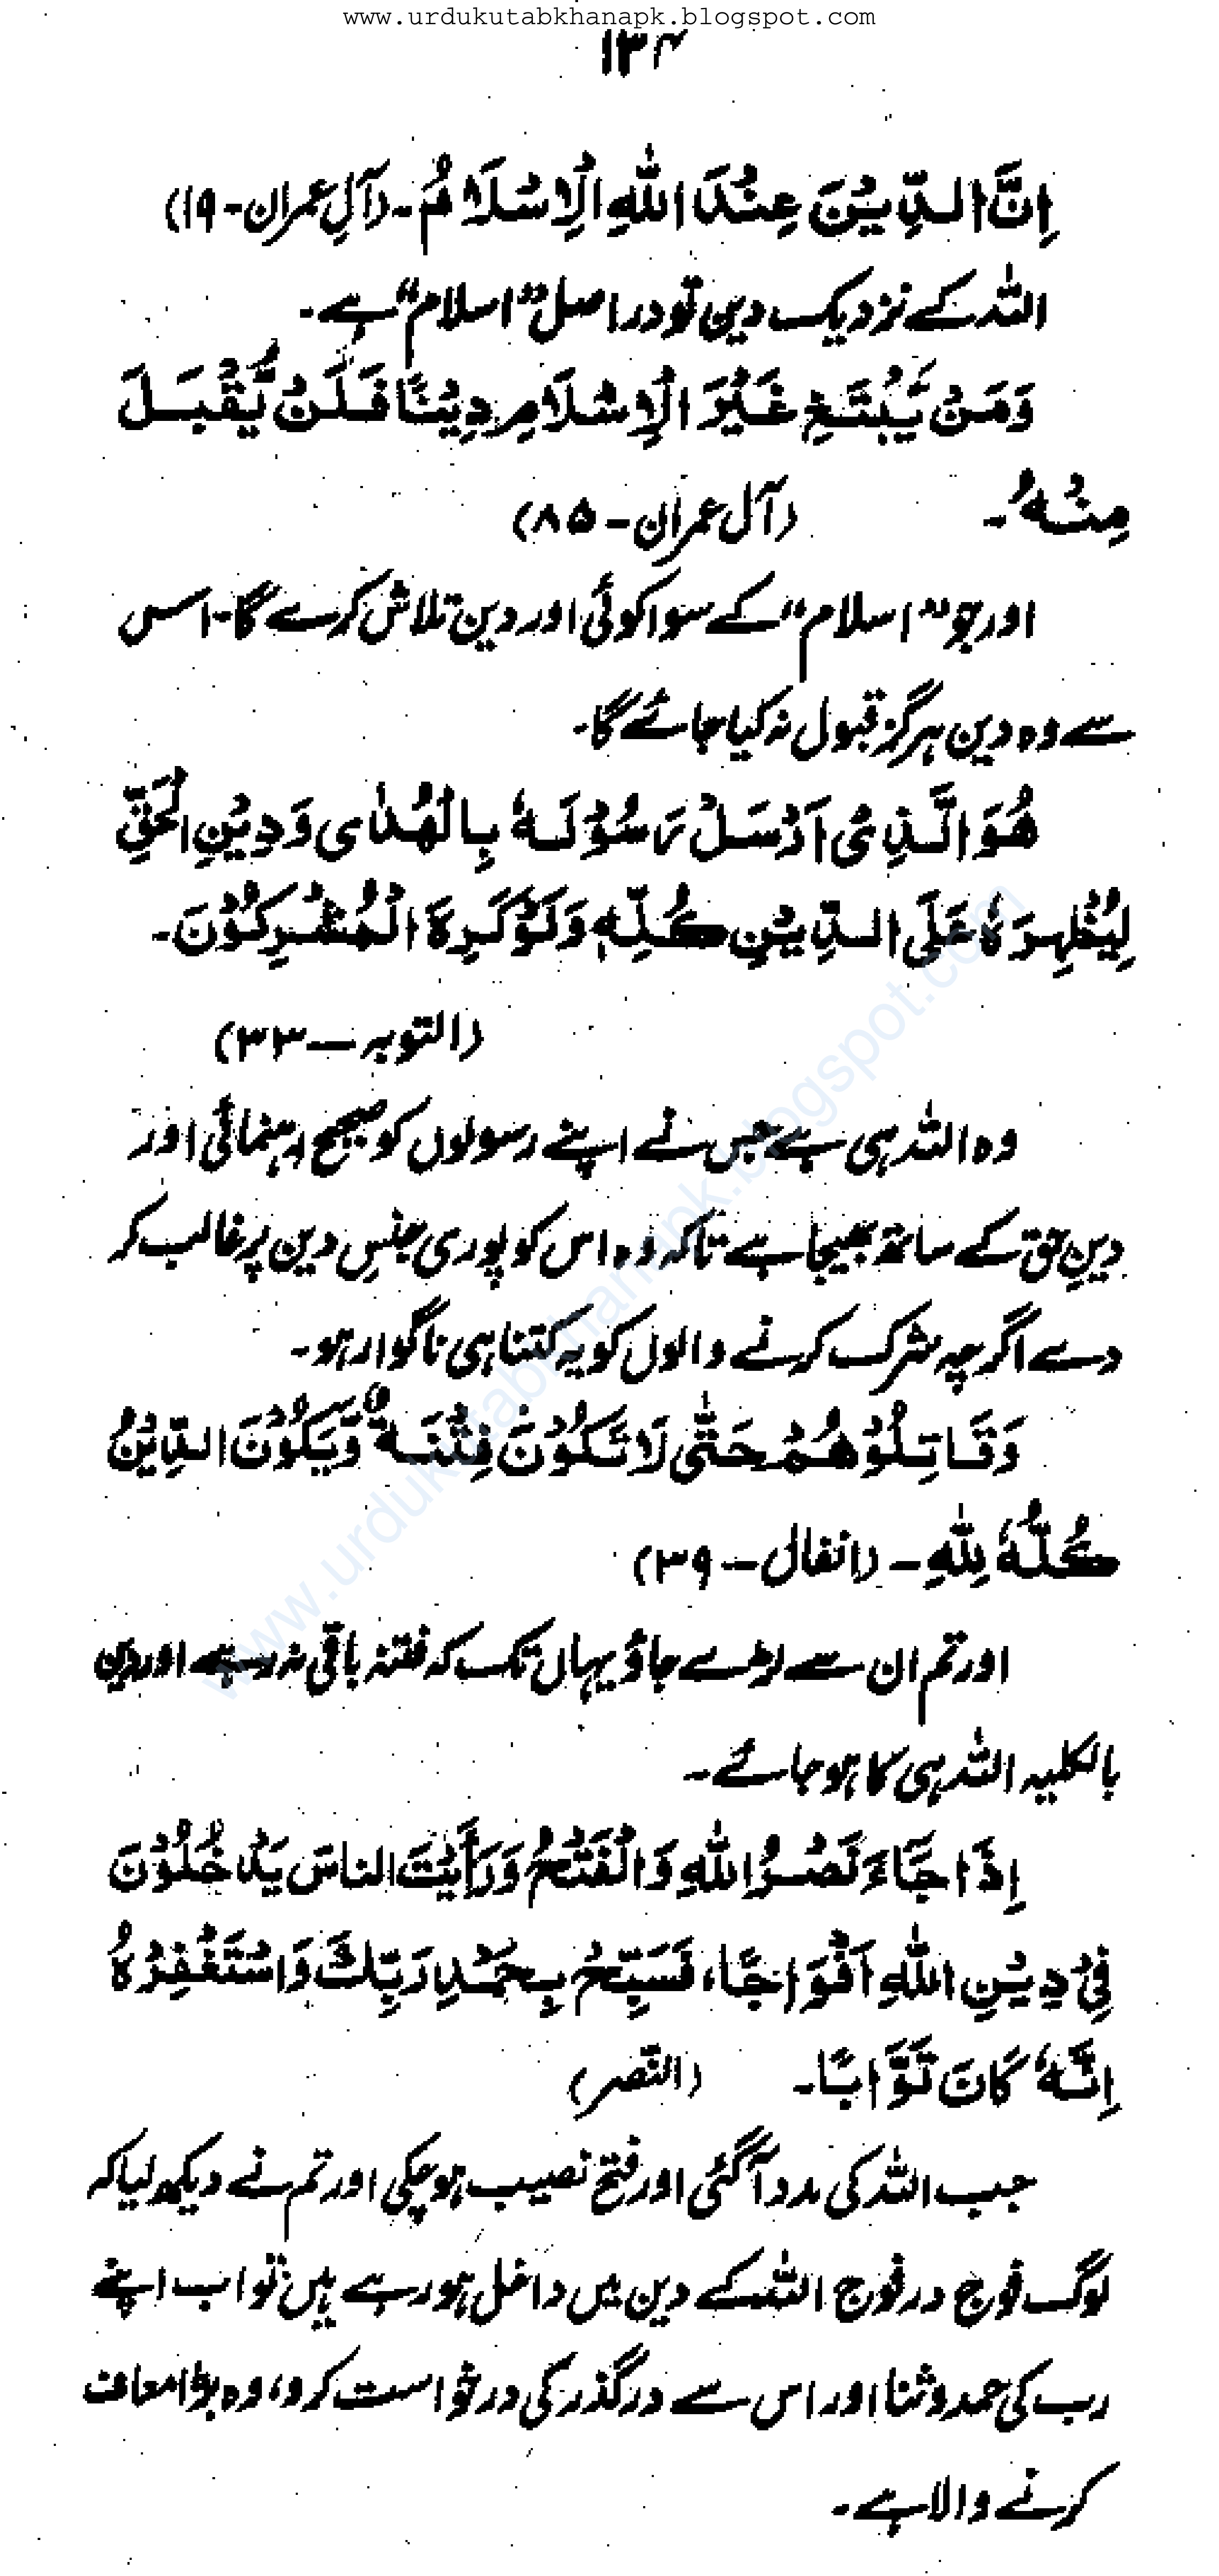 www.urdukutabkhanapk.blogspot.com
۱۳۴
اِنَّ الدِّیْنَ عِنْدَ اللّٰهِ الْاِسْلَامُ۔ (آلِ عمران - ۱۹)
اللہ کے نزدیک دین تو دراصل ”اسلام“ ہے۔
وَمَنْ یَّبْتَغِ غَیْرَ الْاِسْلَامِ دِیْنًا فَلَنْ یُّقْبَلَ
مِنْهُ۔ (آل عمران - ۸۵)
اور جو ”اسلام“ کے سوا کوئی اور دین تلاش کرے گا۔ اس
سے وہ دین ہرگز قبول نہ کیا جائے گا۔
هُوَ الَّذِیْ اَرْسَلَ رَسُوْلَهٗ بِالْهُدٰی وَدِیْنِ الْحَقِّ
لِیُظْهِرَهٗ عَلَی الدِّیْنِ كُلِّهٖ وَلَوْ كَرِهَ الْمُشْرِكُوْنَ۔
(التوبہ — ۳۳)
وہ اللہ ہی ہے جس نے اپنے رسولوں کو صحیح رہنمائی اور
دینِ حق کے ساتھ بھیجا ہے تاکہ وہ اس کو پوری جنسِ دین پر غالب کر
دے اگرچہ شرک کرنے والوں کو یہ کتنا ہی ناگوار ہو۔
وَقَاتِلُوْهُمْ حَتّٰی لَا تَكُوْنَ فِتْنَةٌ وَّیَكُوْنَ الدِّیْنُ
كُلُّهٗ لِلّٰهِ — (انفال — ۳۹)
اور تم ان سے لڑے جاؤ یہاں تک کہ فتنہ باقی نہ رہے اور دین
بالکلیہ اللہ ہی کا ہو جائے۔
اِذَا جَآءَ نَصْرُ اللّٰهِ وَالْفَتْحُ وَرَأَیْتَ الناسَ یَدْخُلُوْنَ
فِیْ دِیْنِ اللّٰهِ اَفْوَاجًا، فَسَبِّحْ بِحَمْدِ رَبِّكَ وَاسْتَغْفِرْهُ
اِنَّهٗ كَانَ تَوَّابًا۔ (النّصر)
جب اللہ کی مدد آگئی اور فتح نصیب ہو چکی اور تم نے دیکھ لیا کہ
لوگ فوج در فوج اللہ کے دین میں داخل ہو رہے ہیں تو اب اپنے
رب کی حمد و ثنا اور اس سے درگذر کی درخواست کرو، وہ بڑا معاف
کرنے والا ہے۔
www.urdukutabkhanapk.blogspot.com